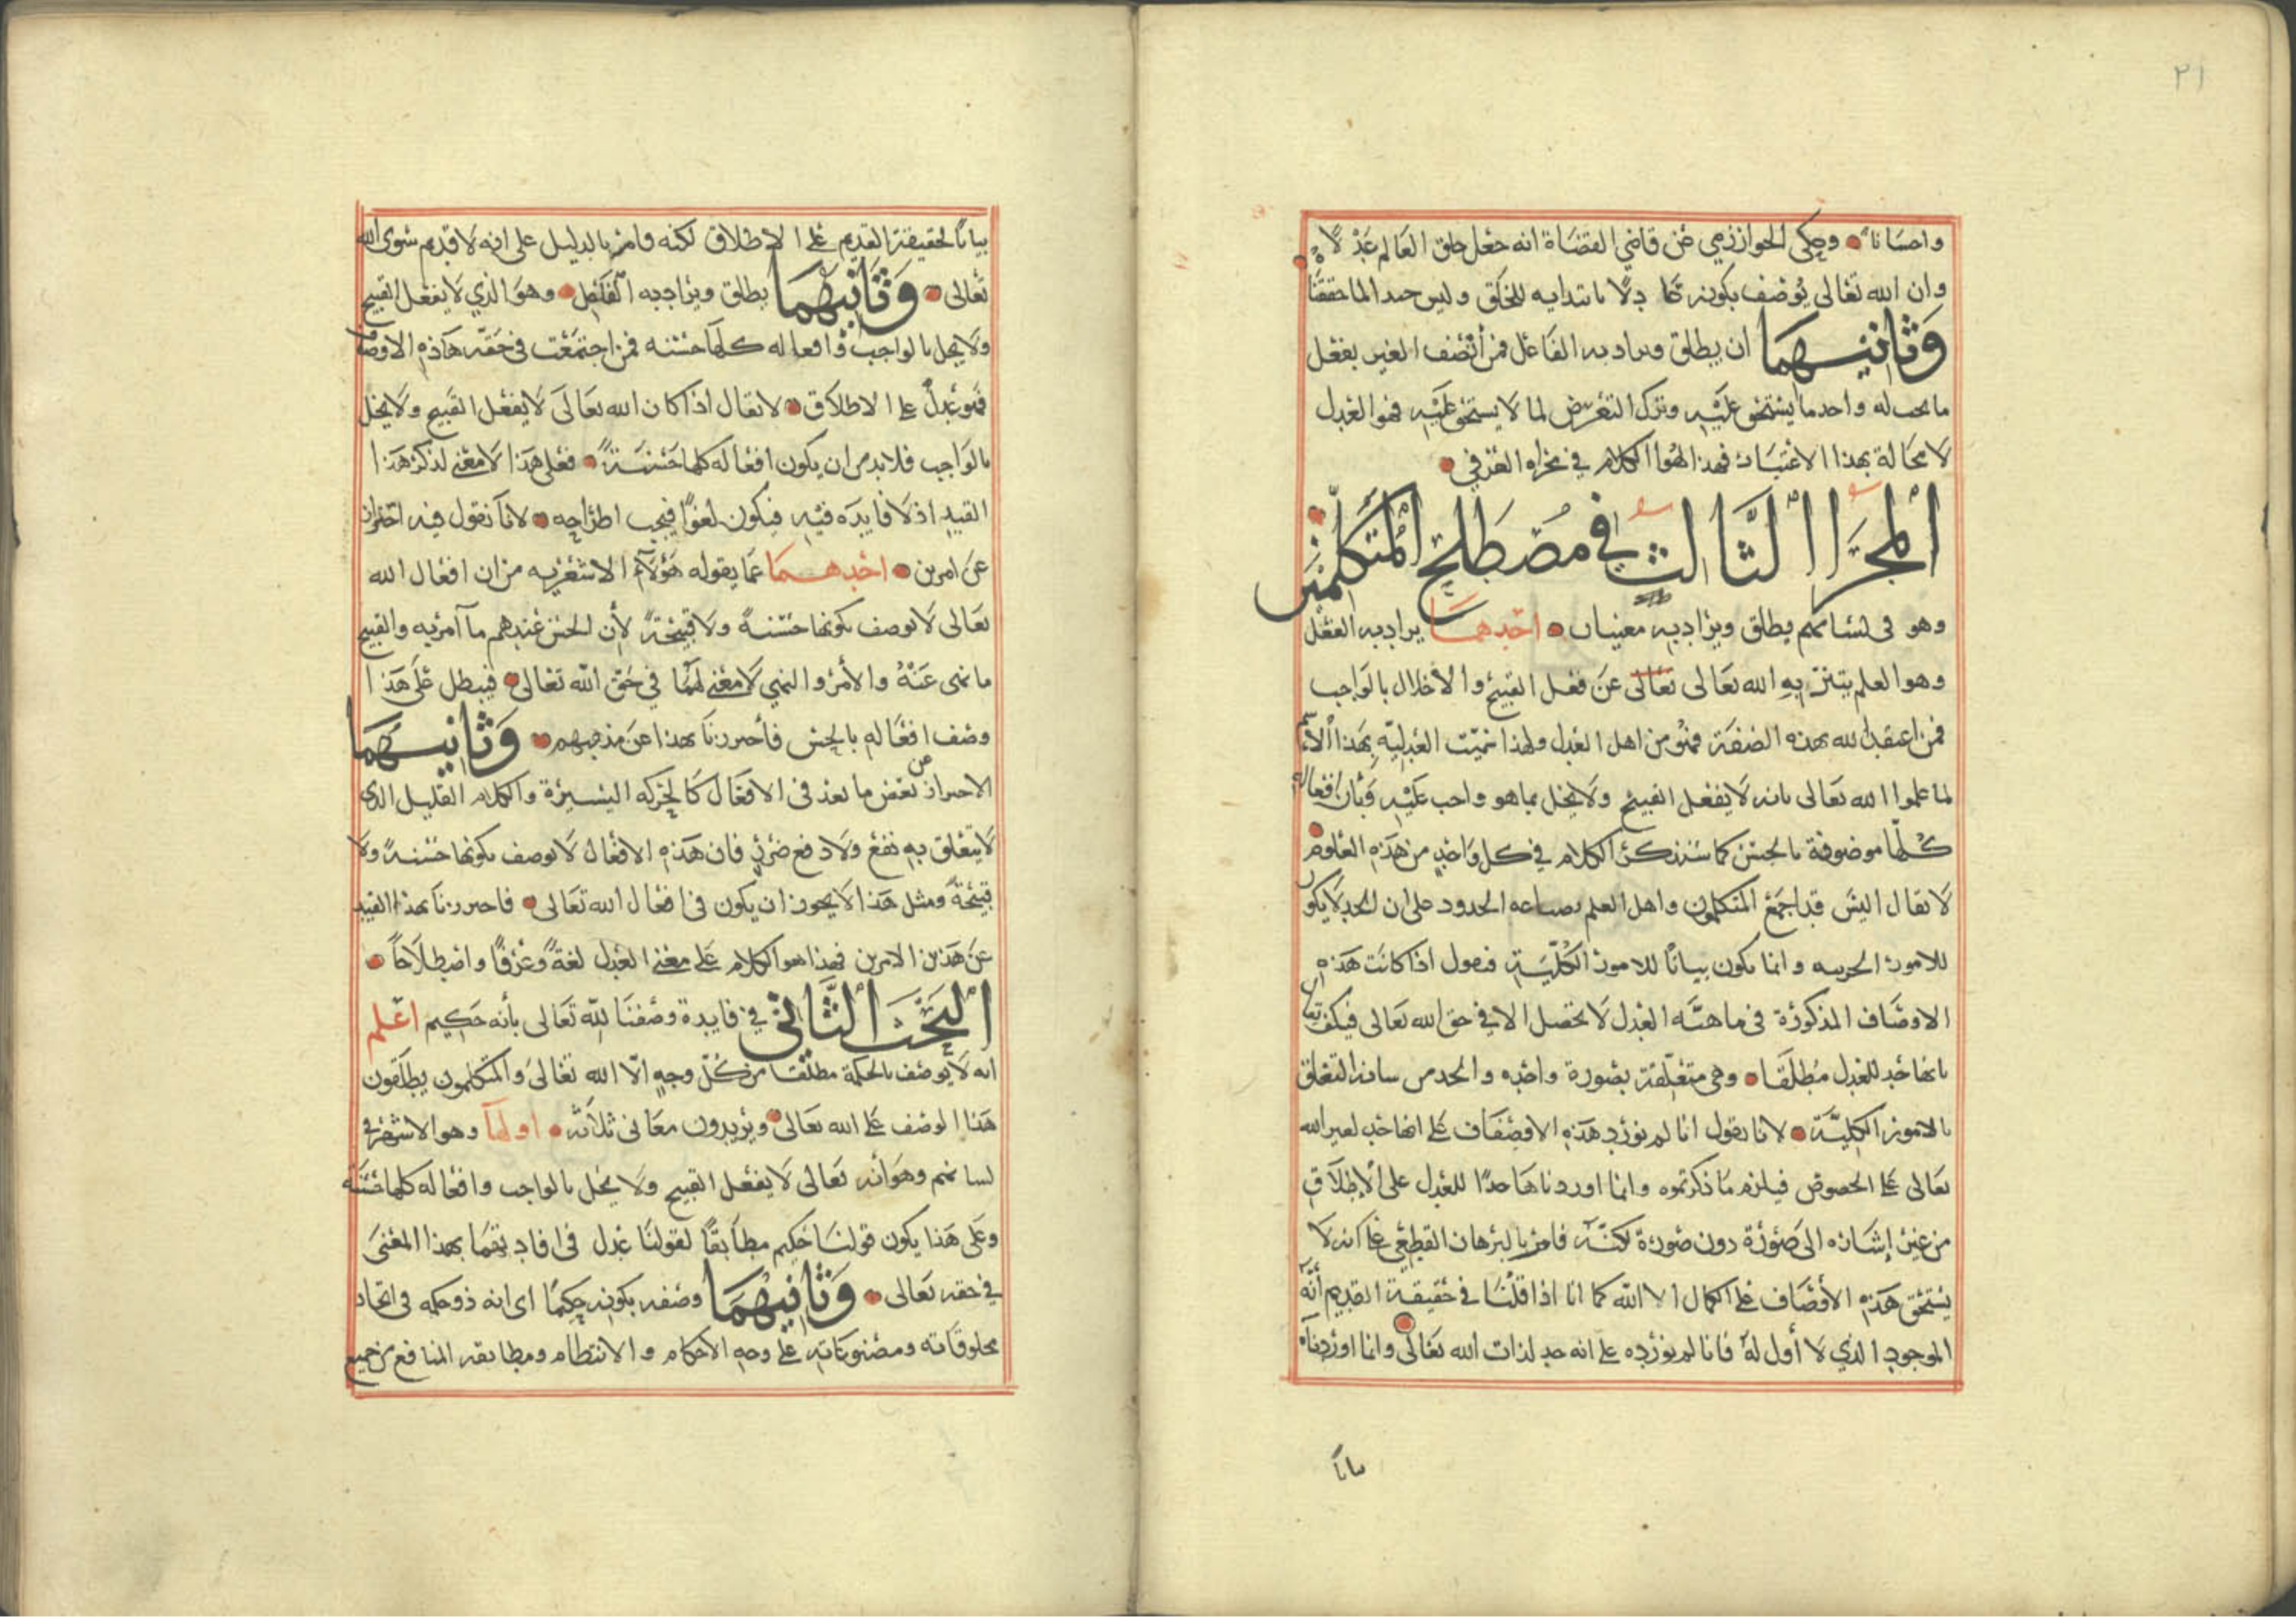 ٢١
واحسانا وحكى الخوارزمي عن قاضي القضاة انه جعل خلق العالم عدلا
وان الله تعالى يوصف بكونه عدلا بابتدايه للخلق وليس حد لما حققنا
وثانيهما ان يطلق ويراد به الفاعل فمن أنصف الغير بفعل
ما يجب له واخذ ما يستحق عليه وترك التعرض لما لا يستحق عليه فهو العدل
لا محالة بهذا الاعتبار فهذا هو الكلام في مجراه العرفي
المجرا الثالث في مصطلح المتكلمين
وهو في لسانهم يطلق ويراد به معنيان احدهما يراد به الفعل
وهو العلم بتنزيه الله تعالى تعالى عن فعل القبيح والاخلال بالواجب
فمن اعتقد لله بهذه الصفة فهو من اهل العدل ولهذا سميت العدلية بهذا الاسم
لما علموا الله تعالى بانه لا يفعل القبيح ولا يخل بما هو واجب عليه وبأن افعاله
كلها موصوفة بالحسن كما سنذكر الكلام في كل واحد من هذه العلوم
لا يقال اليس قد اجمع المتكلمون واهل العلم بصناعه الحدود على ان الحد لا يكون
للامور الجزييه وانما يكون بيانا للامور الكلية فنقول اذا كانت هذه
الاوصاف المذكورة في ماهية العدل لا تحصل الا في حق الله تعالى فيكف يقال
بانها حد للعدل مطلقا وهي متعلقة بصورة واحده والحد من شانه التعلق
بالامور الكلية لانا نقول انا لم نورد هذه الاوصاف على انها حد لغير الله
تعالى على الخصوص فيلزم ما ذكرتموه وانما اوردناها حدا للعدل على الإطلاق
من غير إشاره الى صورة دون صورة لكنه قام بالبرهان القطعي على انه لا
يستحق هذه الأوصاف على الكمال الا الله كما انا اذا قلنا في حقيقة القديم أنه
الموجود الذي لا أول له فانا لم نورده على انه حد لذات الله تعالى وانما اوردناه
بيانا
بيانا لحقيقة القديم على الاطلاق لكنه قام بالدليل على انه لا قديم سوى الله
تعالى وثانيهما يطلق ويراد به الفاعل وهو الذي لا يفعل القبيح
ولا يخل بالواجب وافعاله كلها حسنه فمن اجتمعت في حقه هاذه الاوصاف
فهو عدل على الاطلاق لا يقال اذا كان الله تعالى لا يفعل القبيح ولا يخل
بالواجب فلا بد من ان يكون افعاله كلها حسنة فعلى هذا لا معنى لذكر هذا
القيد اذ لا فايده فيه فيكون لغوا فيجب اطراحه لانا نقول فيه احتراز
عن امرين احدهما عما يقوله هؤلآء الاشعريه من ان افعال الله
تعالى لا توصف بكونها حسنة ولا قبيحة لأن الحسن عندهم ما آمر به والقبيح
ما نهى عنه والأمر والنهي لا معنى لهما في حق الله تعالى فيبطل على هذا
وصف افعاله بالحسن فأحترزنا بهذا عن مذهبهم وثانيهما
الاحتراز عن بعض ما يعد في الافعال كالحركه اليسيرة والكلام القليل الذي
لا يتعلق به نفع ولا دفع ضرر فان هذه الافعال لا توصف بكونها حسنة ولا
قبيحة ومثل هذا لا يجوز ان يكون في افعال الله تعالى فاحترزنا بهذا القيد
عن هذين الامرين فهذا هو الكلام على معنى العدل لغة وعرفا واصطلاحا
البحث الثاني في فايدة وصفنا لله تعالى بأنه حكيم اعلم
انه لا يوصف بالحكمة مطلقا من كل وجه الا الله تعالى والمتكلمون يطلقون
هذا الوصف على الله تعالى ويريدون معاني ثلاثه اولها وهو الاشهر في
لسانهم وهو أنه تعالى لا يفعل القبيح ولا يخل بالواجب وافعاله كلها حسنة
وعلى هذا يكون قولنا حكيم مطابقا لقولنا عدل في افادتهما بهذا المعنى
في حقه تعالى وثانيهما وصفه بكونه حكيما اى انه ذو حكمه في اتحاد
مخلوقاته ومصنوعاته على وجه الاحكام والانتظام ومطابقه المنافع من جميع